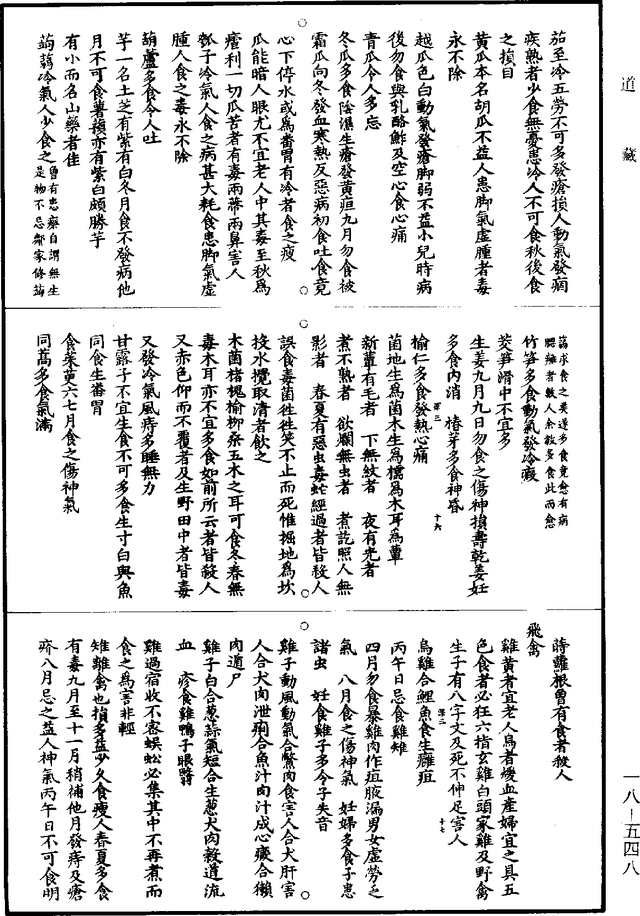 道藏
茄至冷五勞不可多發瘡損人動氣發痼
疾熟者少食無憂患冷人不可食秋後食
之損目
黃瓜本名胡瓜不益人患脚氣虛腫者毒
永不除
越瓜色白動氣發瘡脚弱不益小兒時病
後勿食與乳酪鮓及空心食心痛
青瓜令人多忘
冬瓜多食陰濕生瘡發黃疸九月勿食被
霜瓜向冬發血寒熱反惡病初食吐食竟
心下停水或爲番胃有冷者食之瘦
瓜能暗人眼尤不宜老人中其毒至秋爲
瘧利一切瓜苦者有毒兩蒂兩鼻害人
瓠子冷氣人食之病甚大耗食患脚氣虛
腫人食之毒永不除
葫蘆多食令人吐
芋一名土芝有紫有白冬月食不發病他
月不可食薯蕷亦有紫白頗勝芋
有小而名山藥者佳
蒟蒻冷氣人少食之曾有患瘵自謂無生
是物不忌鄰家修蒟
蒻求食之美遂多食竟愈有病
腮癰者數人余教多食此而愈
竹笋多食動氣發冷癥
茭笋滑中不宜多
生姜九月九日勿食之傷神損壽乾姜妊
多食內消　椿芽多食神昏
第三　十六
榆仁多食發熱心痛
菌地生爲菌木生爲檽爲木耳爲蕈
新蕈有毛者　下無紋者　夜有光者
煮不熟者　欲爛無虫者　煮訖照人無
影者　春夏有惡虫毒蛇經過者皆殺人
誤食毒菌徃徃笑不止而死惟掘地爲坎
投水攪取清者飲之
木菌楮槐榆柳桑五木之耳可食冬春無
毒木耳亦不宜多食如前所云者皆殺人
又赤色仰而不覆者及生野田中者皆毒
又發冷氣風痔多睡無力
甘露子不宜生食不可多食生寸白與魚
同食生番胃
食茱萸六七月食之傷神氣
同蒿多食氣滿
蒔蘿根曾有食者殺人
飛禽
雞黃者宜老人烏者煖血產婦宜之具五
色食者必狂六指玄雞白頭家雞及野禽
生子有八字文及死不伸足害人
第三　十七
烏雞合鯉魚食生癰疽
丙午日忌食雞雉
四月勿食暴雞肉作疽腋漏男女虛勞乏
氣　八月食之傷神氣　妊婦多食子患
諸虫　妊食雞子多令子失音
雞子動風動氣合鱉肉食害人合犬肝害
人合犬肉泄痢合魚汁肉汁成心瘕合獺
肉遁尸
雞子白合葱蒜氣短合生葱犬肉穀道流
血　疹食雞鴨子眼翳
雞過宿收不密蜈蚣必集其中不再煮而
食之爲害非輕
雉雖禽也損多益少久食瘦人春夏多食
有毒九月至十一月稍補他月發痔及瘡
疥八月忌之益人神氣丙午日不可食明
一八—五四八